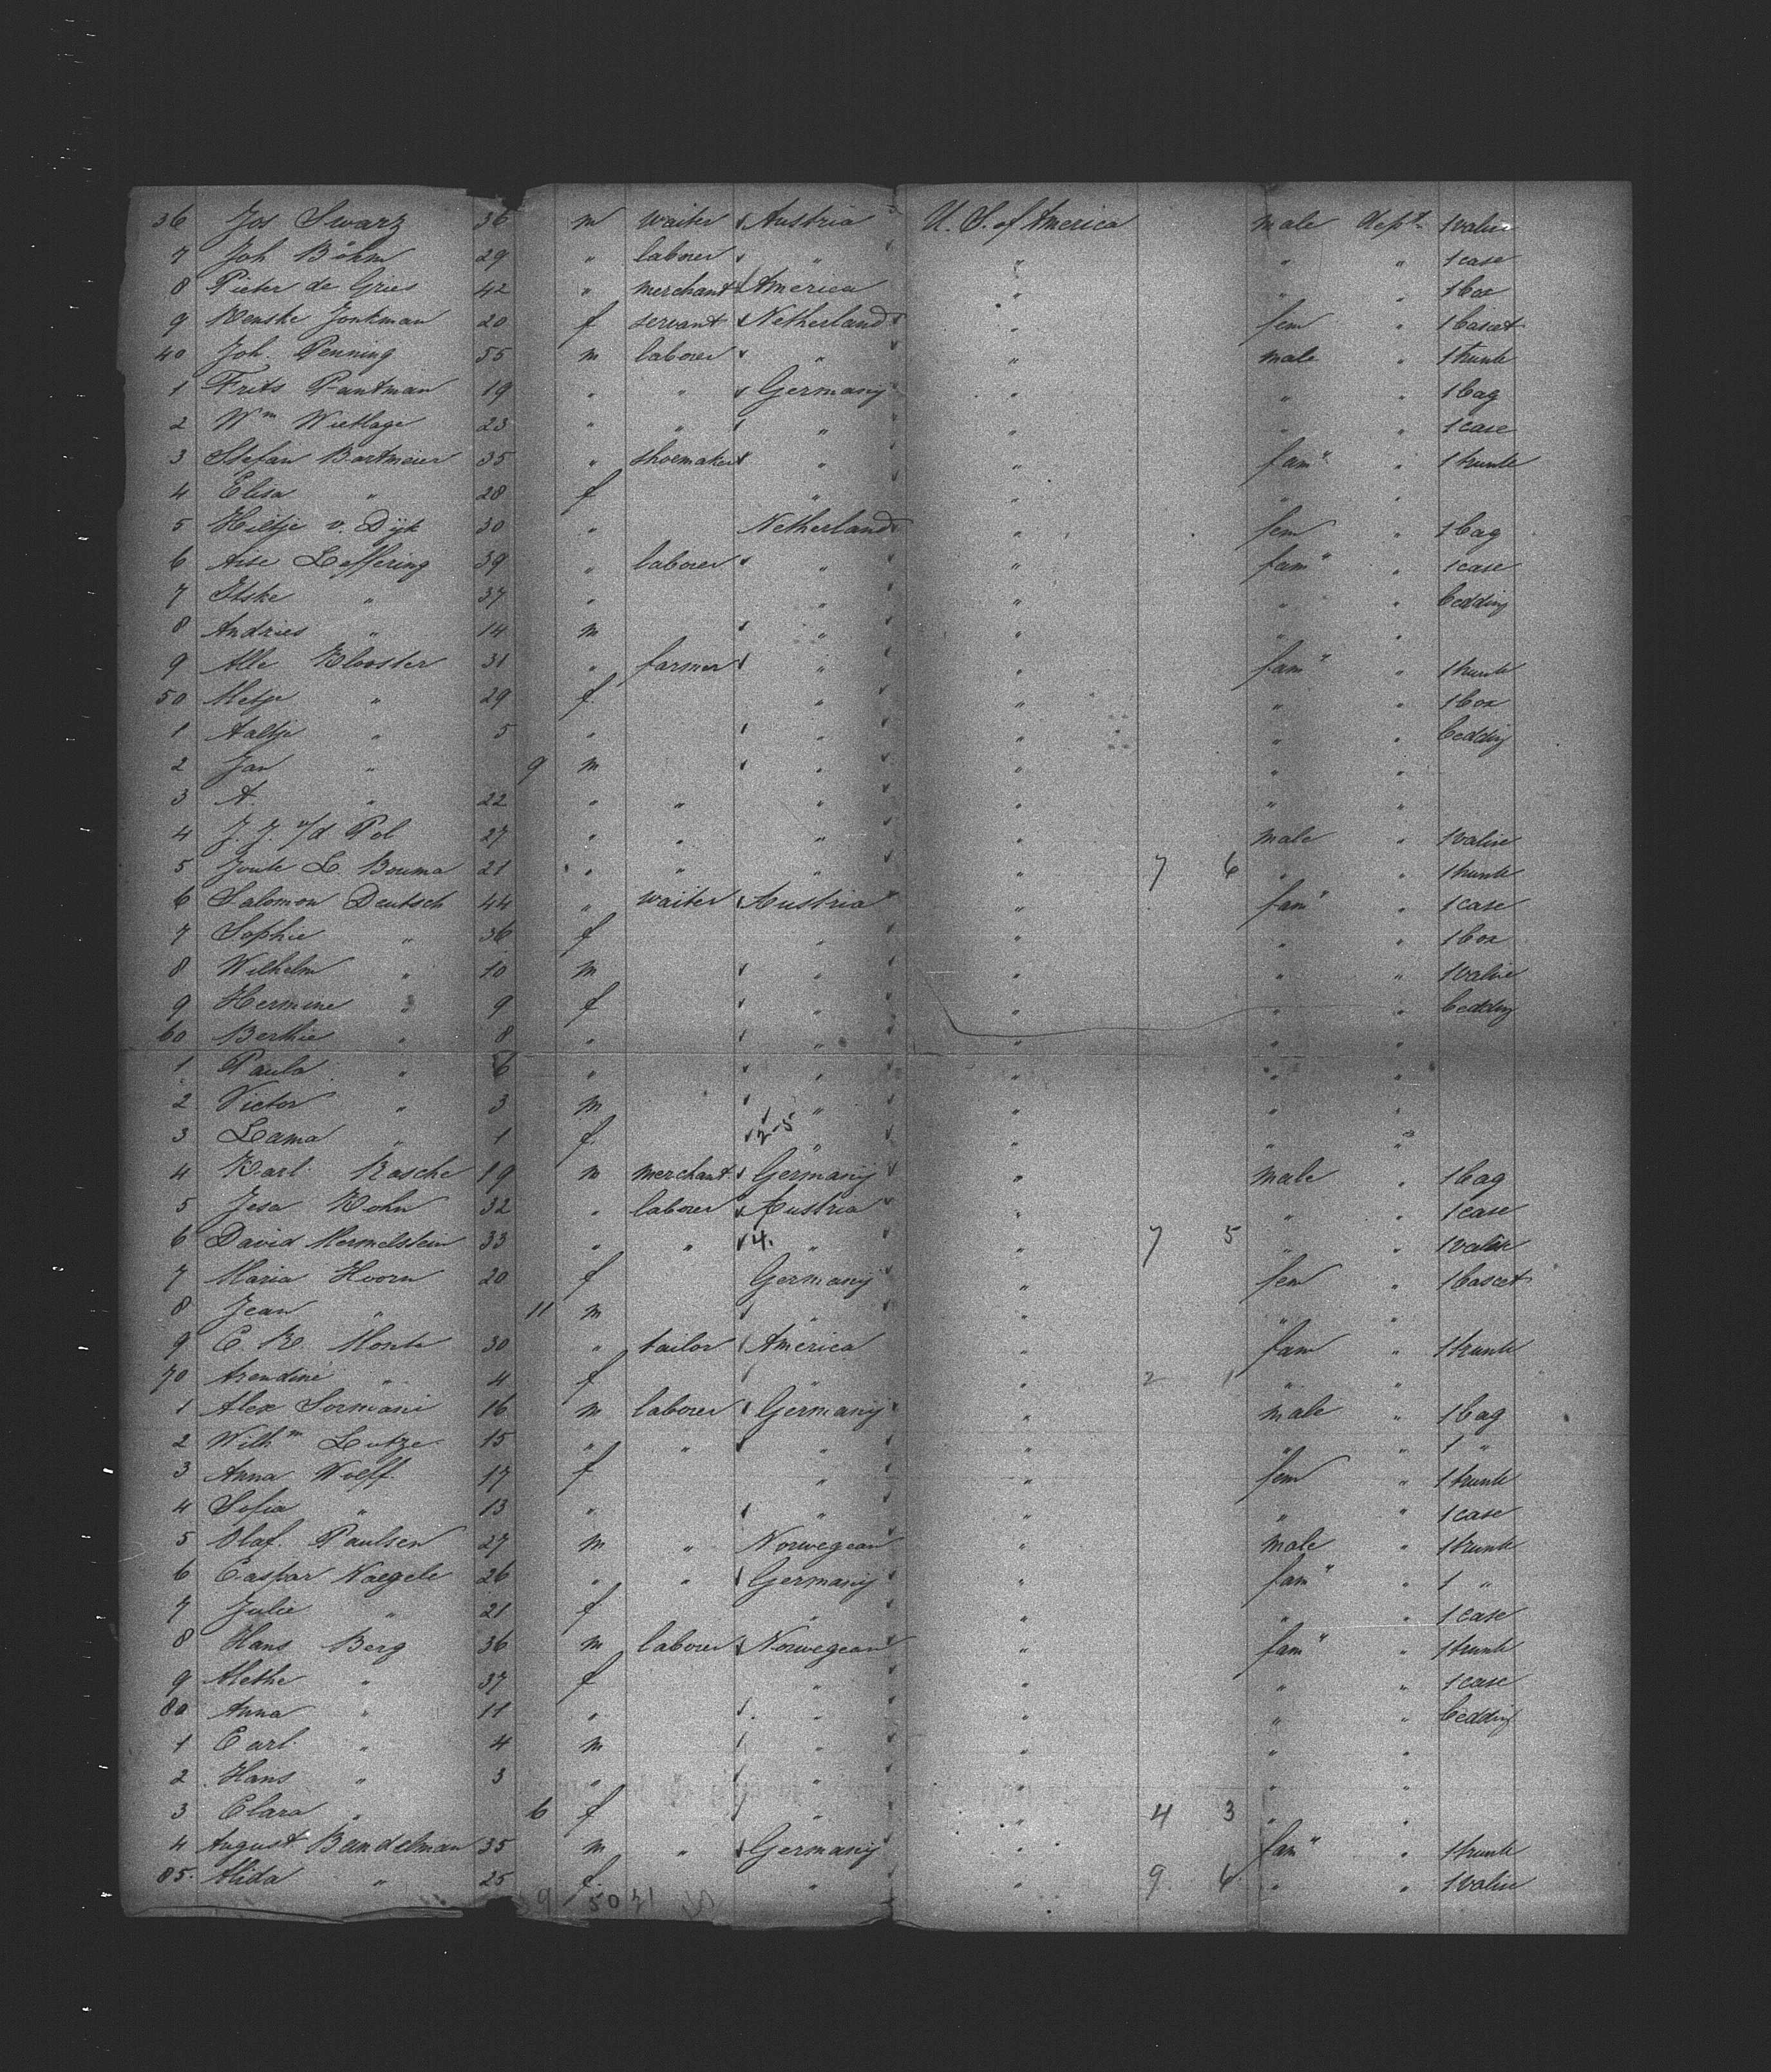 36 Jos Swarz 36 m waiter Austria U. S. of America male dept 1 valise
7 Joh Böhm 29 " laborer " " " " 1 case
8 Pieter de Gries 42 " merchant America " " " 1 box
9 Renske Jonkman 20 f servant Netherland " fem " 1 bascet
40 Joh. Penning 55 m laborer " " male " 1 trunk
1 Frits Pantman 19 " " Germany " " 1 bag
2 Wm Wietlage 23 " " " " " " 1 case
3 Stefan Bartmeier 35 " shoemaker " " fam " 1 trunk
4 Elisa " 28 f " " "
5 Hiltje v. Dijk 30 " Netherland " fem " 1 bag
6 Arse Leffering 39 " laborer " " fam " 1 case
7 Itske " 37 " " " " " bedding
8 Andries " 14 m " " " "
9 Alle Klooster 31 " farmer " " fam " 1 trunk
50 Metje " 29 f " " " " 1 box
1 Aaltje " 5 " " " " " bedding
2 Jan " 9 m " " " "
3 A. " 22 " " " " " "
4 J. J. v/d Pol 27 " " " " male " 1 valise
5 Joute L. Bouma 21 " " " " 7 6 " " 1 trunk
6 Salomon Deutsch 44 " waiter Austria " fam " 1 case
7 Sophie " 36 f " " " " 1 box
8 Wilhelm " 10 m " " " " 1 valise
9 Hermine " 9 f " " " " bedding
60 Berthie " 8 " " " " "
1 Paula " 6 " " " " "
2 Victor " 3 m " " " "
3 Lama " 1 f 2-5 " " " "
4 Karl Rasche 19 m merchant Germany " male " 1 bag
5 Jesa Kohn 32 " laborer Austria " " " 1 case
6 David Mermelstein 33 " " 4. " " 7 5 " " 1 valise
7 Maria Hoorn 20 f Germany " fem " 1 bascet
8 Jean " 11 m " " " "
9 C. R. Monte 30 " tailor America " fam " 1 trunk
70 Arendine " 4 f " " 2 1 " "
1 Alex Sormani 16 m laborer Germany " male " 1 bag
2 Wilhm Lutze 15 " " " " " " 1 "
3 Anna Wolff 17 f " " fem " 1 trunk
4 Sofia " 13 " " " " " 1 case
5 Olaf. Paulsen 27 m " Norwegean " male " 1 trunk
6 Caspar Naegele 26 " " Germany " fam " 1 "
7 Julie " 21 f " " " " 1 case
8 Hans Berg 36 m laborer Norwegean " fam " 1 trunk
9 Alethe " 37 f " " " " 1 case
80 Anna " 11 " " " " " bedding
1 Carl " 4 m " " " "
2 Hans " 3 " " " " "
3 Clara " 6 f " " 4 3 " "
4 August Bandelman 35 m " Germany " fam " 1 trunk
85. Alida " 25 f. " " 9. 6 " " 1 valise